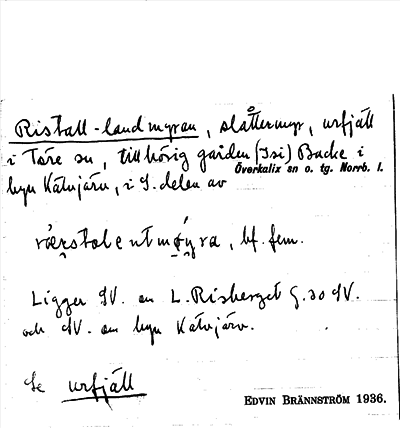 Ristall-landmyran, slåttermyr, urfjäll
i Töre sn, tillhörig gården (Isi) Backe i
Överkalix sn o. tg. Norrb. l.
byn Kätvjärv, i S. delen av
bf. fem.
Ligger SV. om L. Risberget
och SV. om byn Kätvjärv.
Se urfjäll
EDVIN BRÄNNSTRÖM 1936.